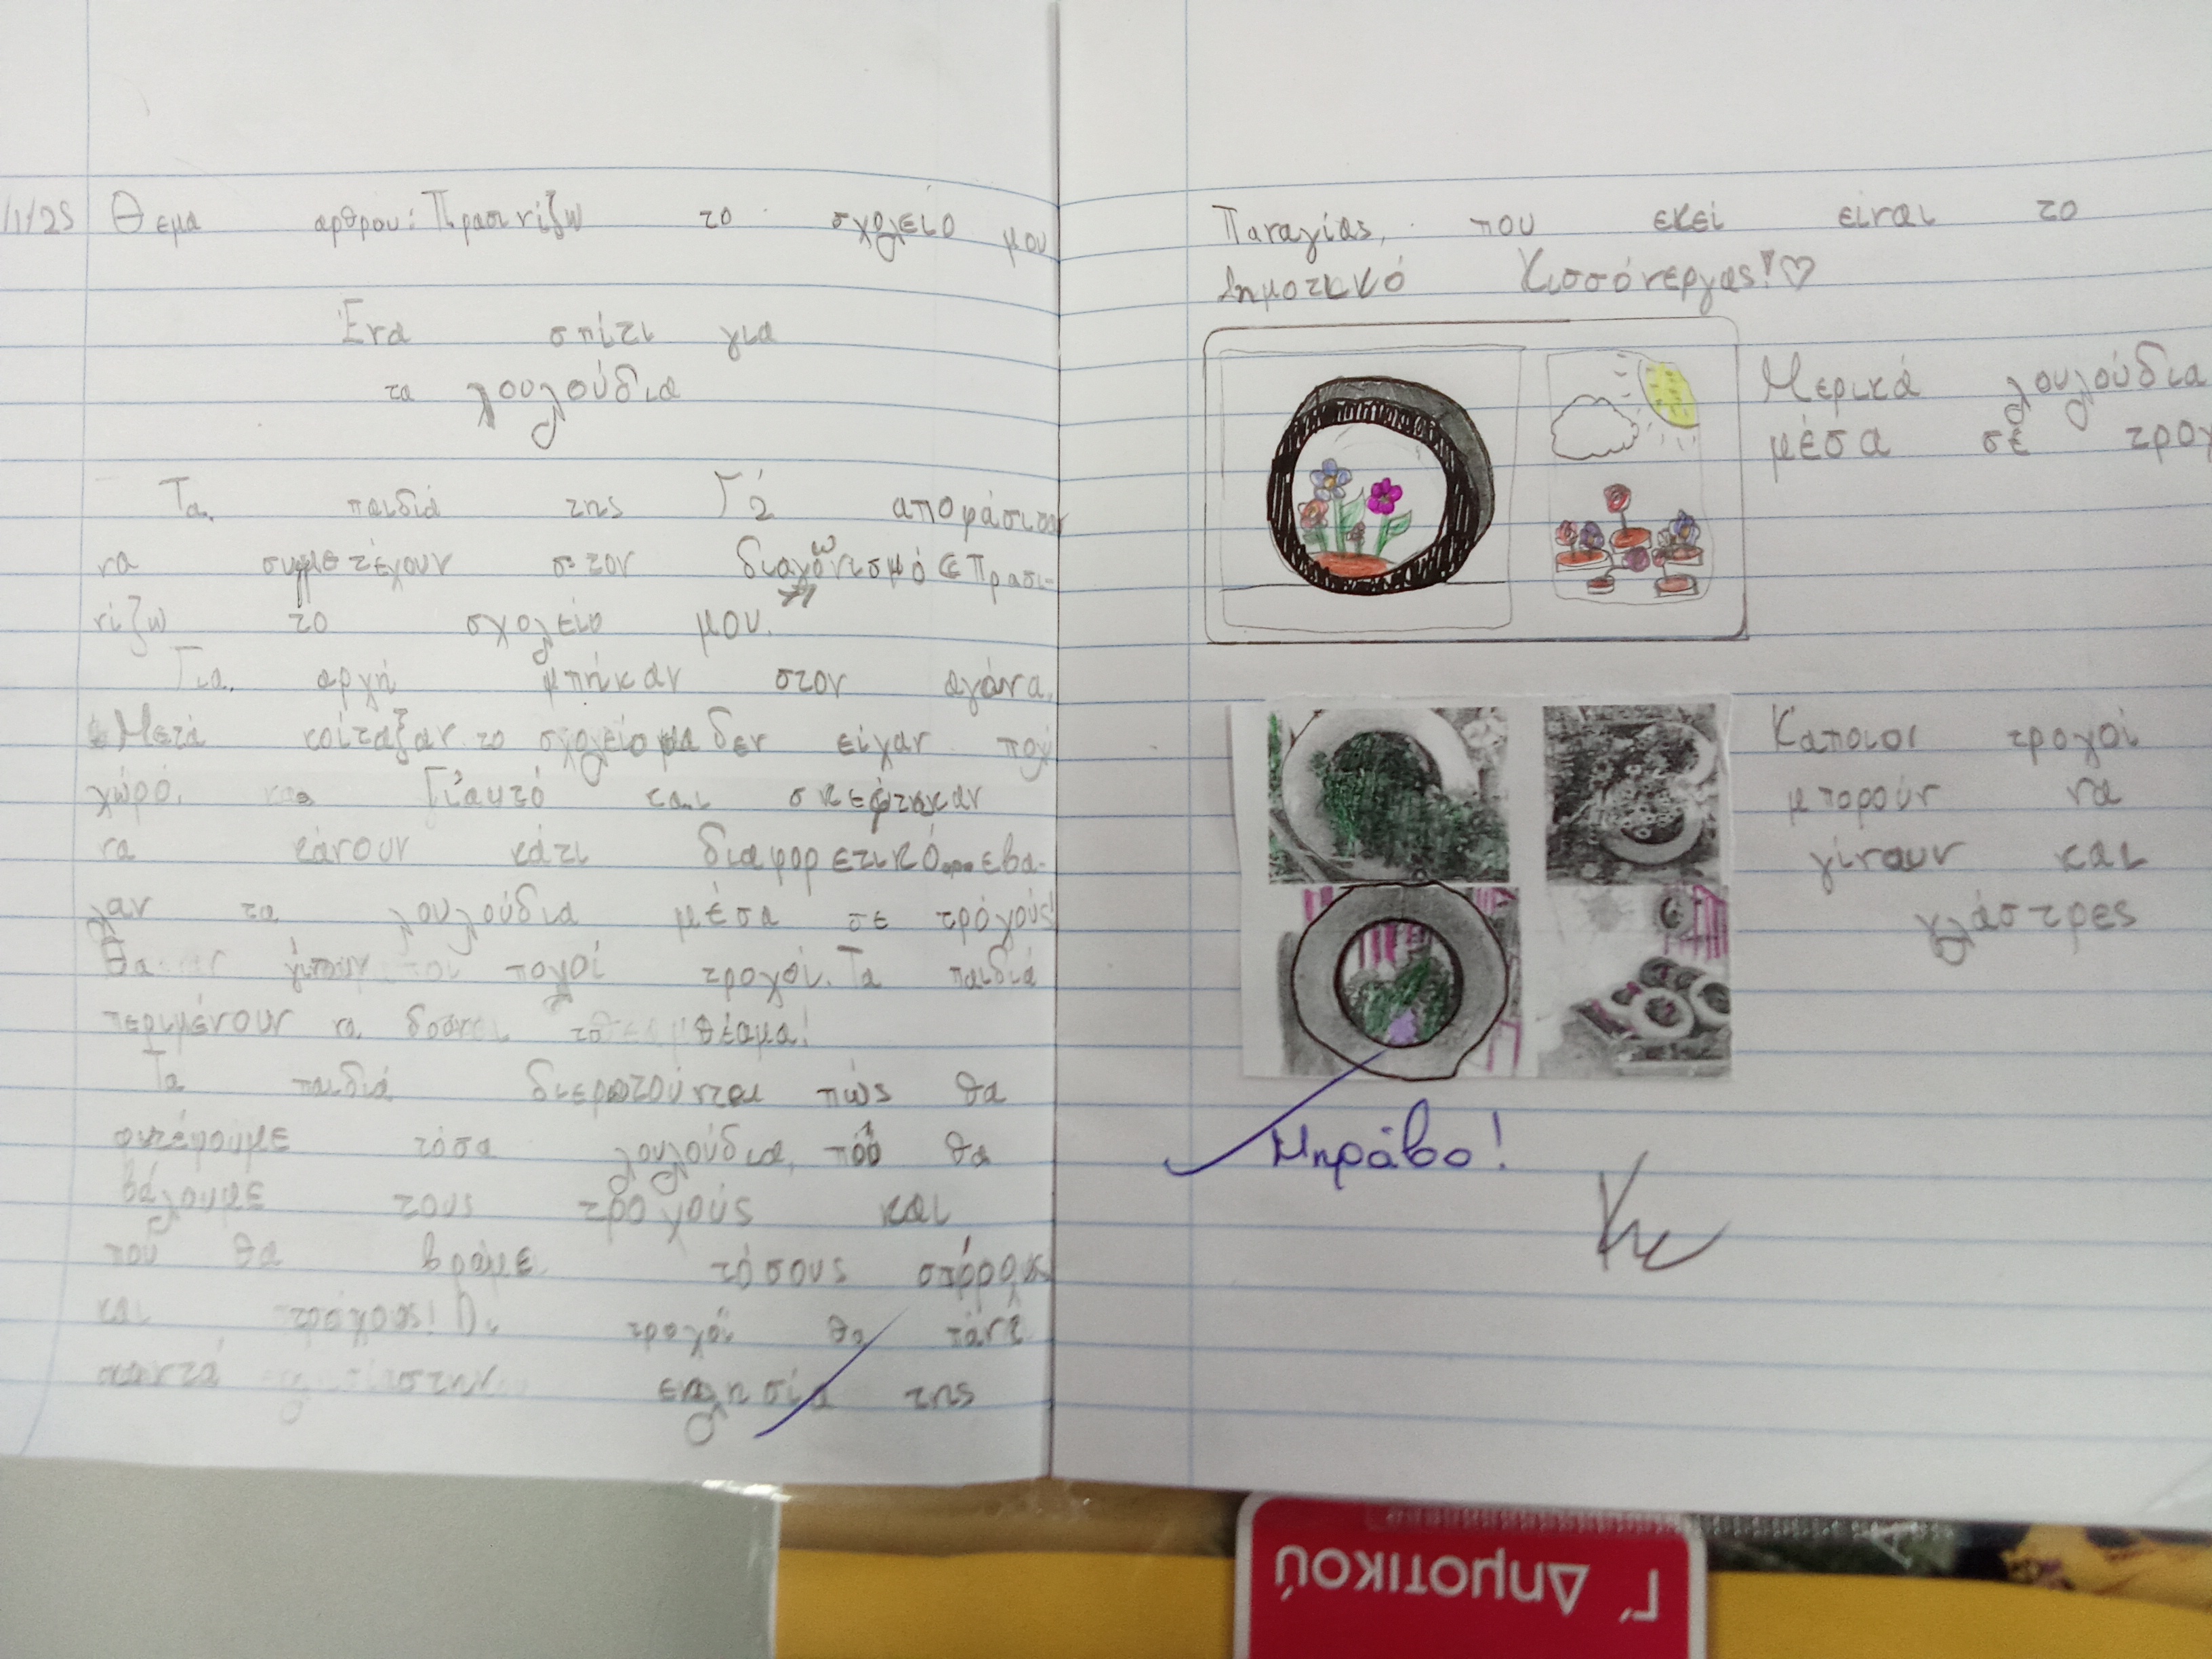 /1/25 Θεμα αρθρου: Πρασινίζω το σχολείο μου
Ένα σπίτι για
τα λουλούδια
Τα παιδιά της Γ΄2 αποφάσισαν
να συμμετέχουν στον διαγωνισμό «Πρασι-
νίζω το σχολείο μου.»
Για αρχή μπήκαν στον αγώνα.
Μετά κοίταξαν το σχολείο μα δεν είχαν πολύ
χώρό. Γι'αυτό και σκεφτικαν
να κάνουν κάτι διαφορετικό... εβα-
λαν τα λουλούδια μέσα σε τρόχούς!
Θα γίνουν πολοί τροχοί. Τα παιδιά
περιμένουν να θέαμα!
Τα παιδιά διερωτούνται πώς θα
φυτέψουμε τόσα λουλούδια, πού θα
βάλουμε τους τροχούς και
πού θα βρούμε τόσους σπόρους
και τρόχους! Οι τροχοί θα πάνε
στην εκλησία της
Παναγίας, που εκεί είναι το
Δημοτικό Χισσόνεργας!♡
Μερικά λουλούδια
μέσα σε τροχ
Κάποιοι τροχοί
μπορούν να
γίνουν και
γλάστρες
Μπράβο!
Γ΄ Δημοτικού